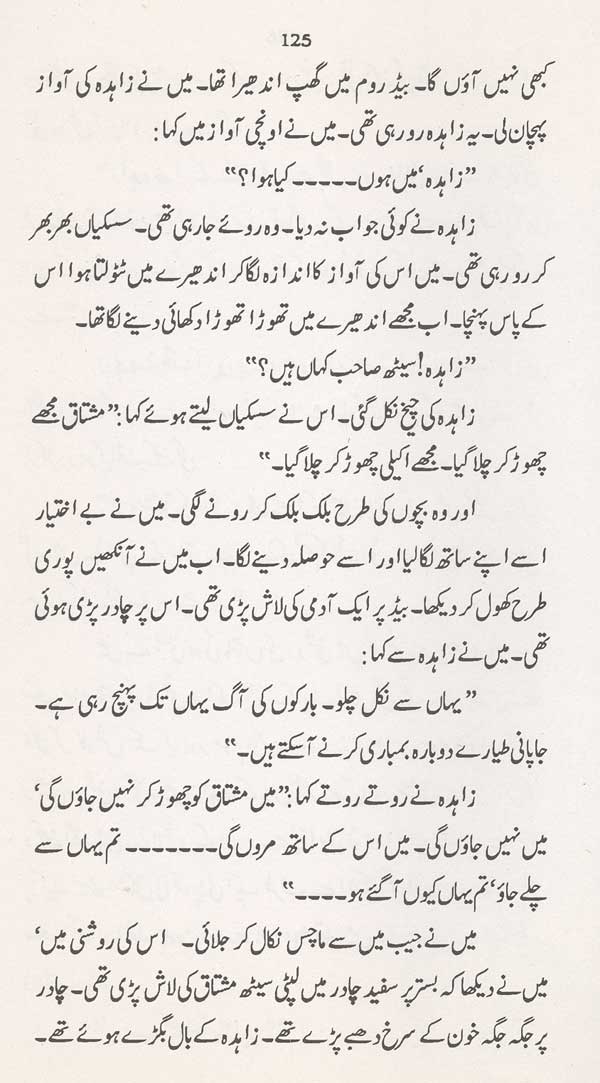 125
کبھی نہیں آؤں گا۔ بیڈ روم میں گھپ اندھیرا تھا۔ میں نے زاہدہ کی آواز
پہچان لی۔ یہ زاہدہ رو رہی تھی۔ میں نے اونچی آواز میں کہا:
”زاہدہ‘ میں ہوں۔۔۔۔۔ کیا ہوا؟“
زاہدہ نے کوئی جواب نہ دیا۔ وہ روئے جا رہی تھی۔ سسکیاں بھر بھر
کر رو رہی تھی۔ میں اس کی آواز کا اندازہ لگا کر اندھیرے میں ٹٹولتا ہوا اس
کے پاس پہنچا۔ اب مجھے اندھیرے میں تھوڑا تھوڑا دکھائی دینے لگا تھا۔
”زاہدہ! سیٹھ صاحب کہاں ہیں؟“
زاہدہ کی چیخ نکل گئی۔ اس نے سسکیاں لیتے ہوئے کہا: ”مشتاق مجھے
چھوڑ کر چلا گیا۔ مجھے اکیلی چھوڑ کر چلا گیا۔“
اور وہ بچوں کی طرح بلک بلک کر رونے لگی۔ میں نے بے اختیار
اسے اپنے ساتھ لگا لیا اور اسے حوصلہ دینے لگا۔ اب میں نے آنکھیں پوری
طرح کھول کر دیکھا۔ بیڈ پر ایک آدمی کی لاش پڑی تھی۔ اس پر چادر پڑی ہوئی
تھی۔ میں نے زاہدہ سے کہا:
”یہاں سے نکل چلو۔ بارکوں کی آگ یہاں تک پہنچ رہی ہے۔
جاپانی طیارے دوبارہ بمباری کرنے آ سکتے ہیں۔“
زاہدہ نے روتے روتے کہا: ”میں مشتاق کو چھوڑ کر نہیں جاؤں گی‘
میں نہیں جاؤں گی۔ میں اس کے ساتھ مروں گی۔۔۔۔۔۔۔ تم یہاں سے
چلے جاؤ‘ تم یہاں کیوں آ گئے ہو۔۔۔۔“
میں نے جیب میں سے ماچس نکال کر جلائی۔ اس کی روشنی میں‘
میں نے دیکھا کہ بستر پر سفید چادر میں لپٹی سیٹھ مشتاق کی لاش پڑی تھی۔ چادر
پر جگہ جگہ خون کے سرخ دھبے پڑے تھے۔ زاہدہ کے بال بگڑے ہوئے تھے۔